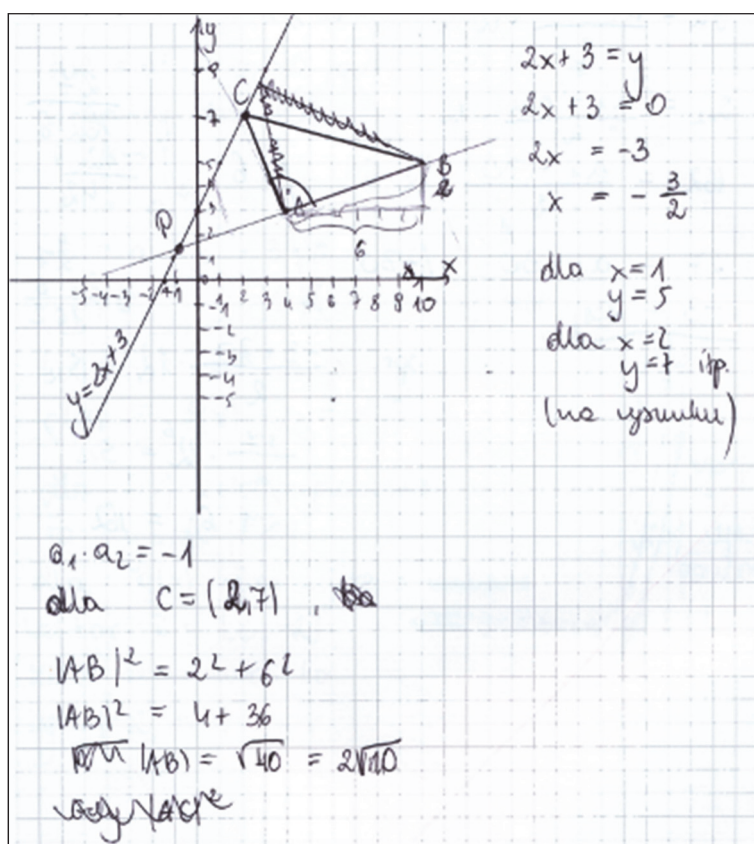 y
8
C
7
B
5
B
4
2
3
A
P
2
1
6
x
-5 -4 -3 -2 -1 1 2 3 4 5 6 7 8 9 10
-1
-2
-3
-4
-5
y=2x+3
2x+3 = y
2x+3 = 0
2x = -3
x = - 3/2
dla x=1
y=5
dla x=2
y=7 itp.
(na rysunku)
a₁·a₂ = -1
dla C=(2,7)
|AB|² = 2² + 6²
|AB|² = 4 + 36
|AB| = √40 = 2√10